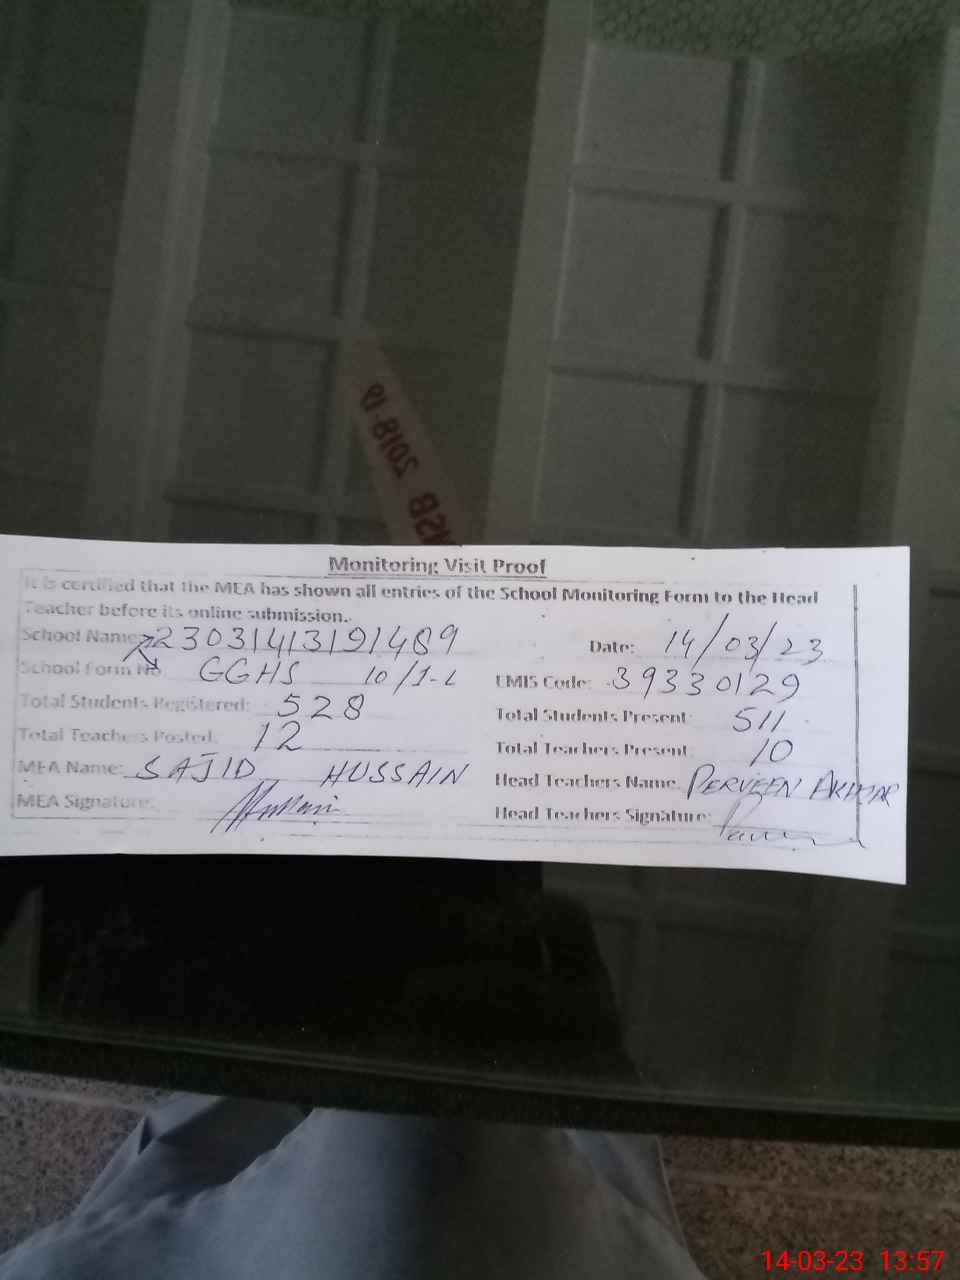 NSB 2018-19
Monitoring Visit Proof
It is certified that the MEA has shown all entries of the School Monitoring Form to the Head
Teacher before its online submission.
School Name: 23031413191489 Date: 14/03/23
School Form No GGHS 10/1-L EMIS Code: 39330129
Total Students Registered: 528 Total Students Present: 511
Total Teachers Posted: 12 Total Teachers Present: 10
MEA Name: SAJID HUSSAIN Head Teachers Name: PERVEEN AKHTAR
MEA Signature: Hussain Head Teachers Signature:
14-03-23 13:57